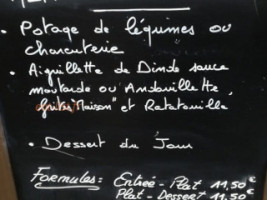 • Potage de légumes ou
charcuterie
• Aiguillette de Dinde sauce
moutarde ou Andouillette,
frites "Maison" et Ratatouille
• Dessert du Jour
Formules: Entrée - Plat 11,50€
Plat - Dessert 11,50€